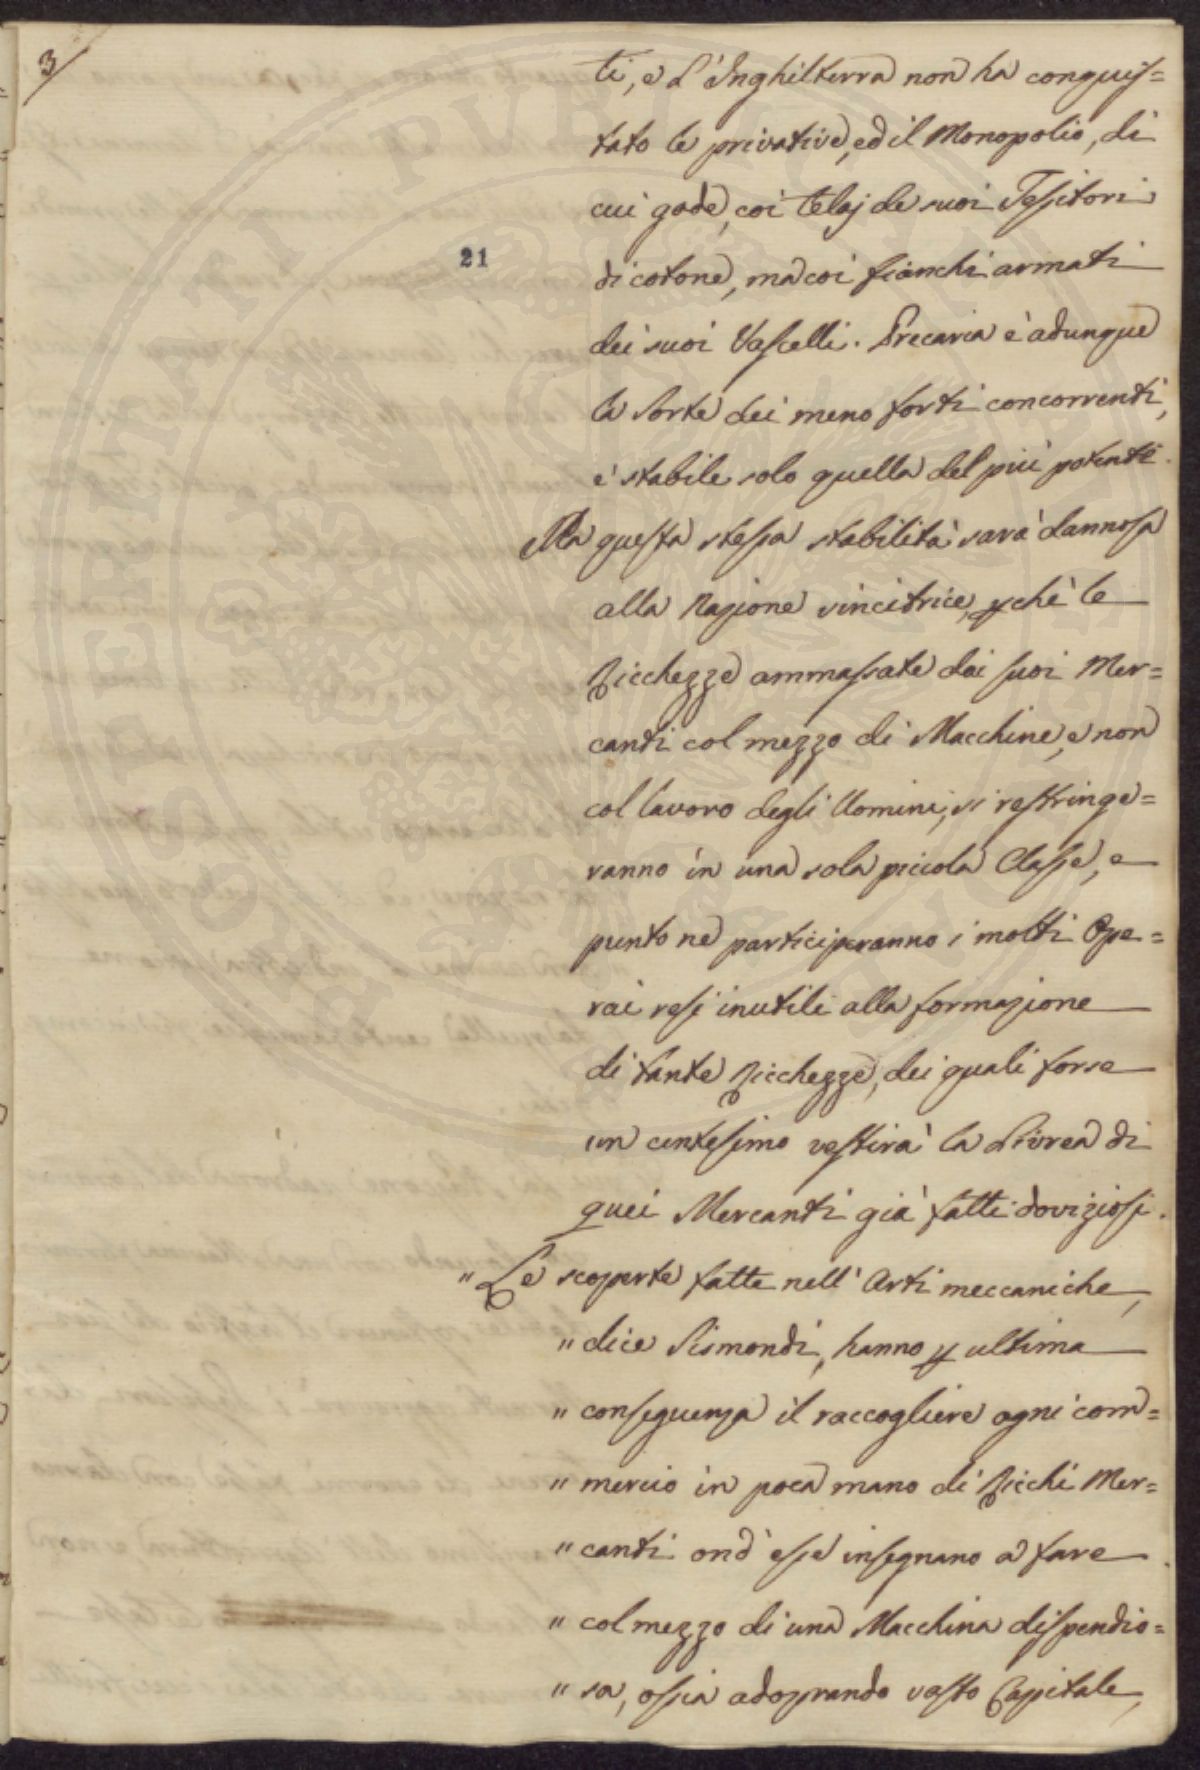 3/
ti, e l'Inghilterra non ha conquis=
tato le privative, ed il Monopolio, di
cui gode, coi telaj de suoi Tessitori
21
di cotone, ma coi fianchi armati
dei suoi Vascelli. Precaria è adunque
la sorte dei meno forti concorrenti,
è stabile solo quella del più potente.
Ma questa stessa stabilità sarà dannosa
alla Nazione vincitrice, pchè le
Ricchezze ammassate dai suoi Mer=
canti col mezzo di Macchine, e non
col lavoro degli Uomini, si restringe=
ranno in una sola piccola Classe, e
punto ne participeranno i molti Ope=
rai resi inutili alla formazione
di tante Ricchezze, dei quali forse
un centesimo vestirà la Livrea di
quei Mercanti già fatti doviziosi.
" Le scoperte fatte nell' Arti meccaniche,
" dice Sismondi, hanno p ultima
" conseguenza il raccogliere ogni com=
" mercio in poca mano di Ricchi Mer=
" canti ond' esse insegnano a fare
" col mezzo di una Macchina dispendio=
" sa, ossia adoprando vasto Capitale,
POSTERITATI PUBLICAE